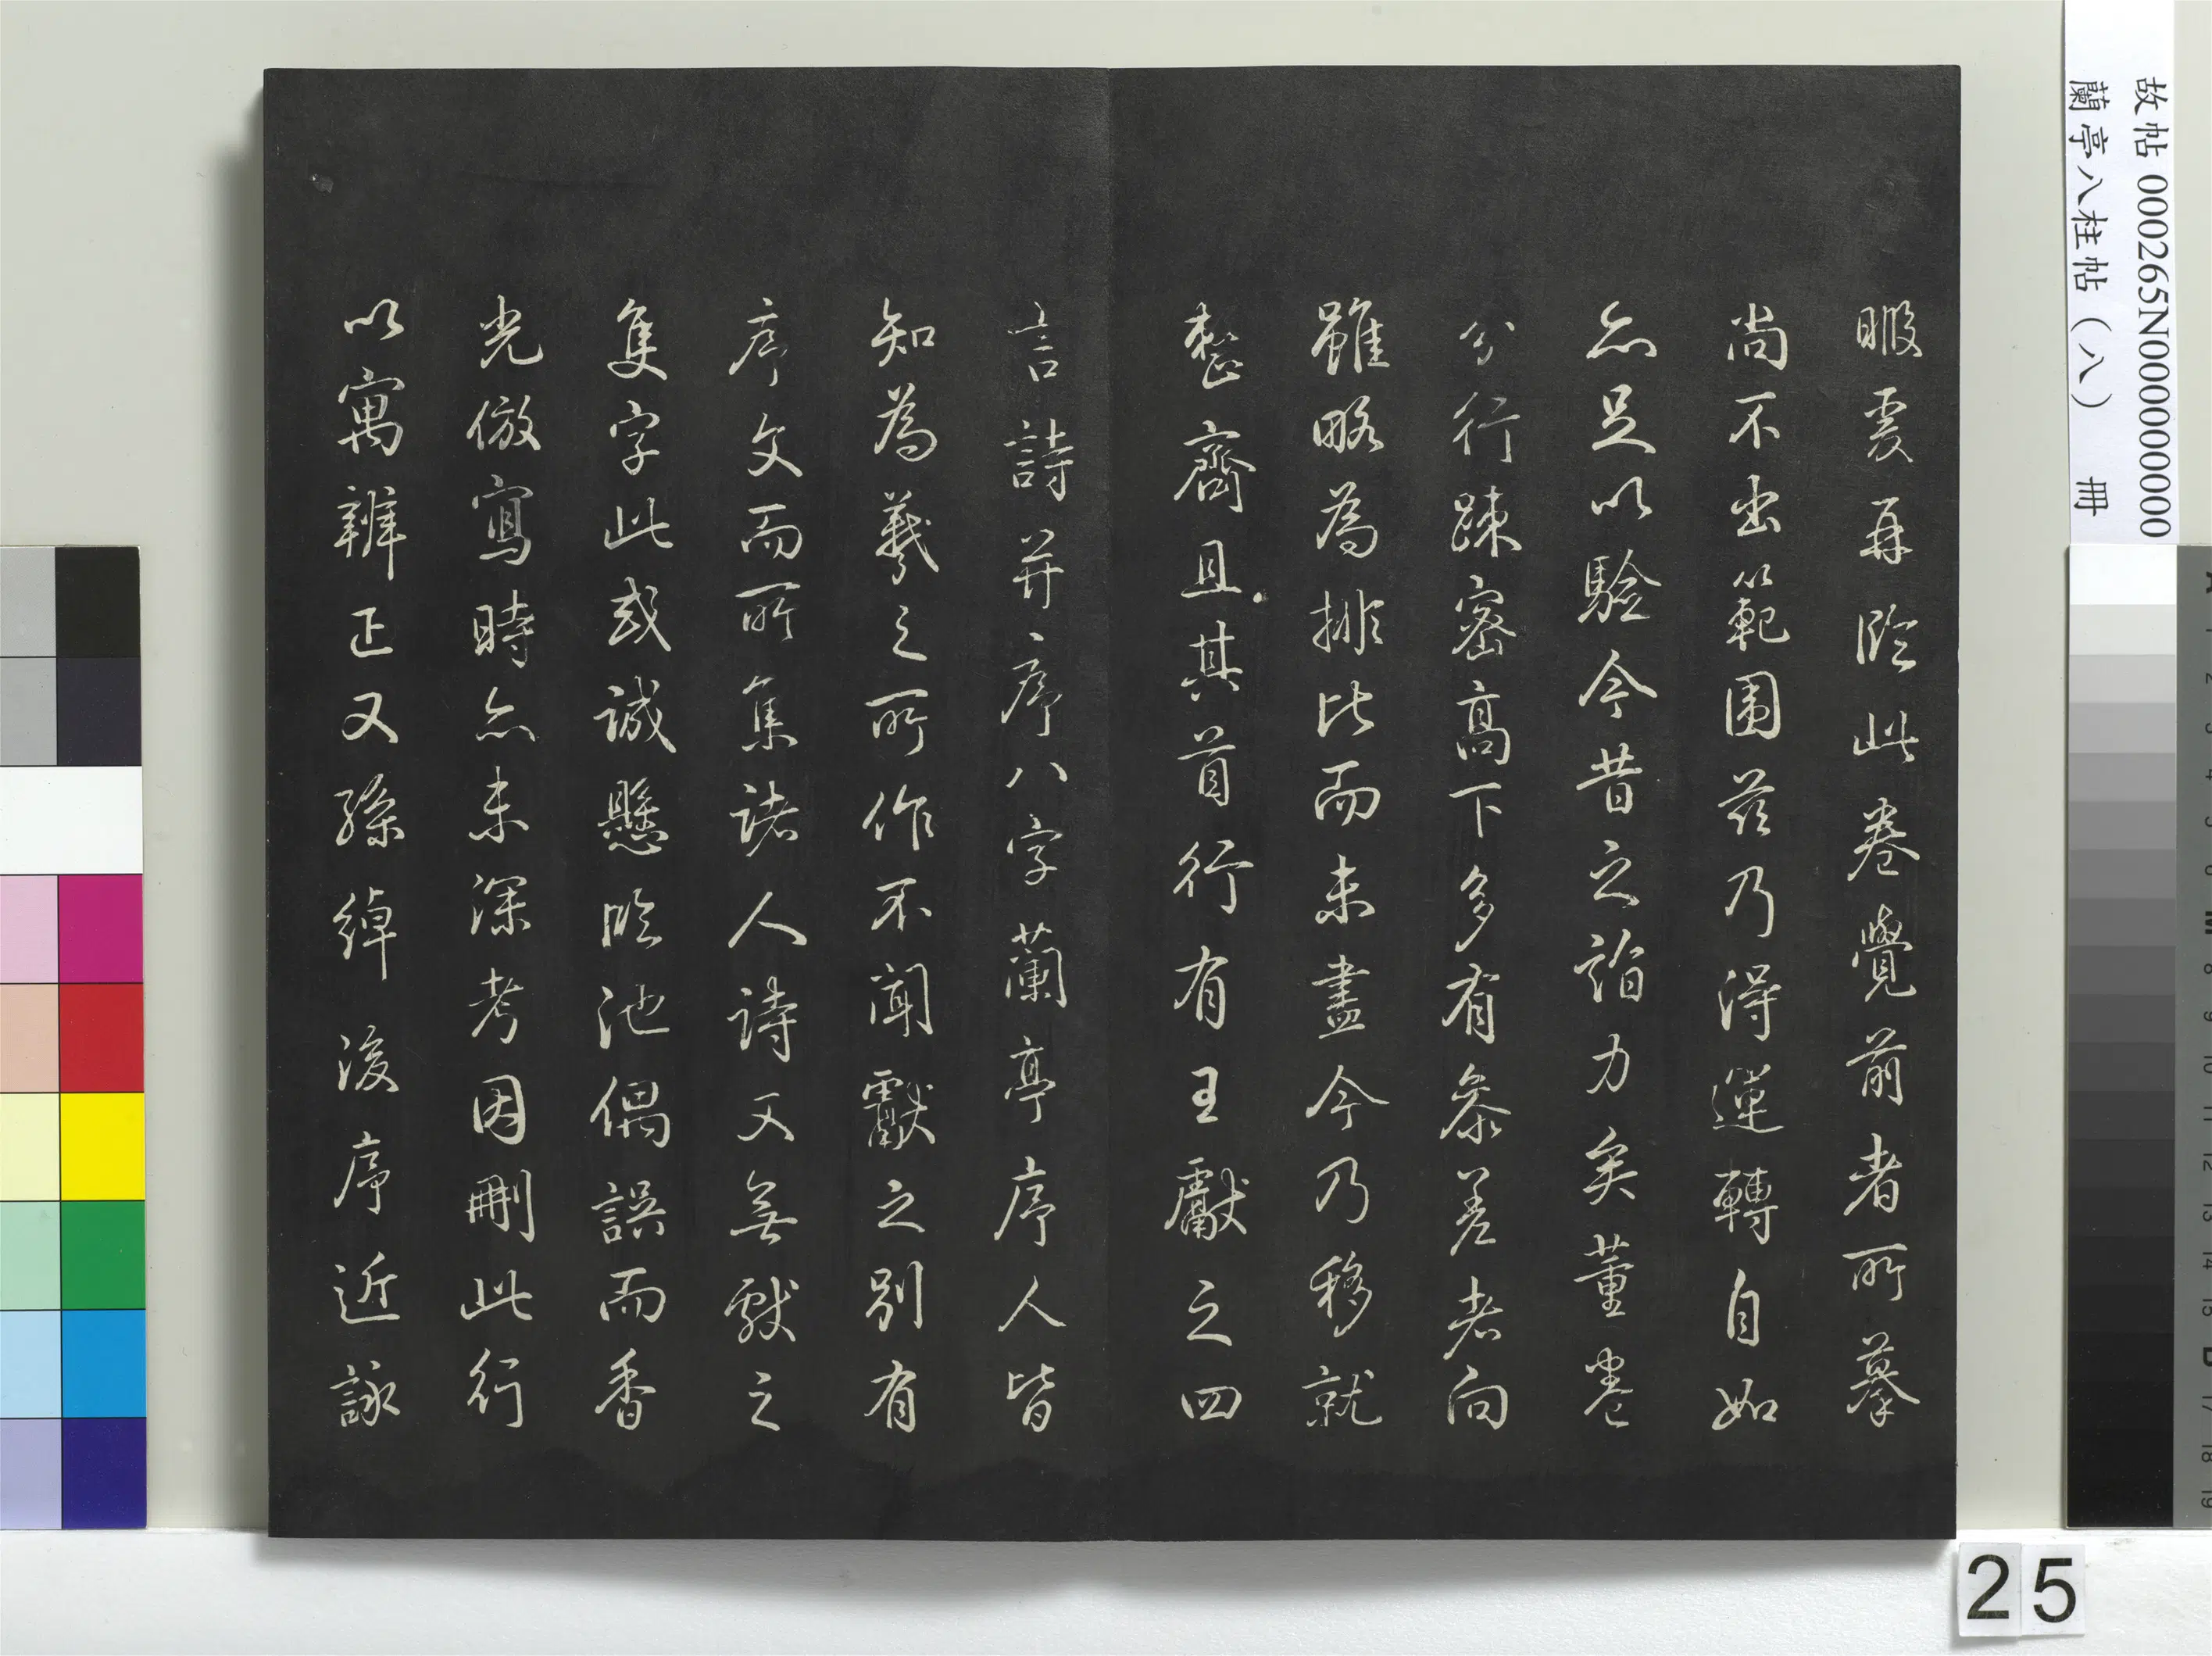 暇爰再臨此卷覺前者所摹
尚不出範圍茲乃得運轉自如
亦足以驗今昔之詣力矣董卷
分行疎密高下多有參差者向
雖略為排比而未盡今乃移就
整齊且其首行有王獻之四
言詩并序八字蘭亭序人皆
知為羲之所作不聞獻之別有
序文而所集諸人詩又無獻之
隻字此或誠懸臨池偶誤而香
光倣寫時亦未深考因刪此行
以寓辨正又孫綽後序近詠
故帖 000265N000000000
蘭亭八柱帖(八) 冊
25